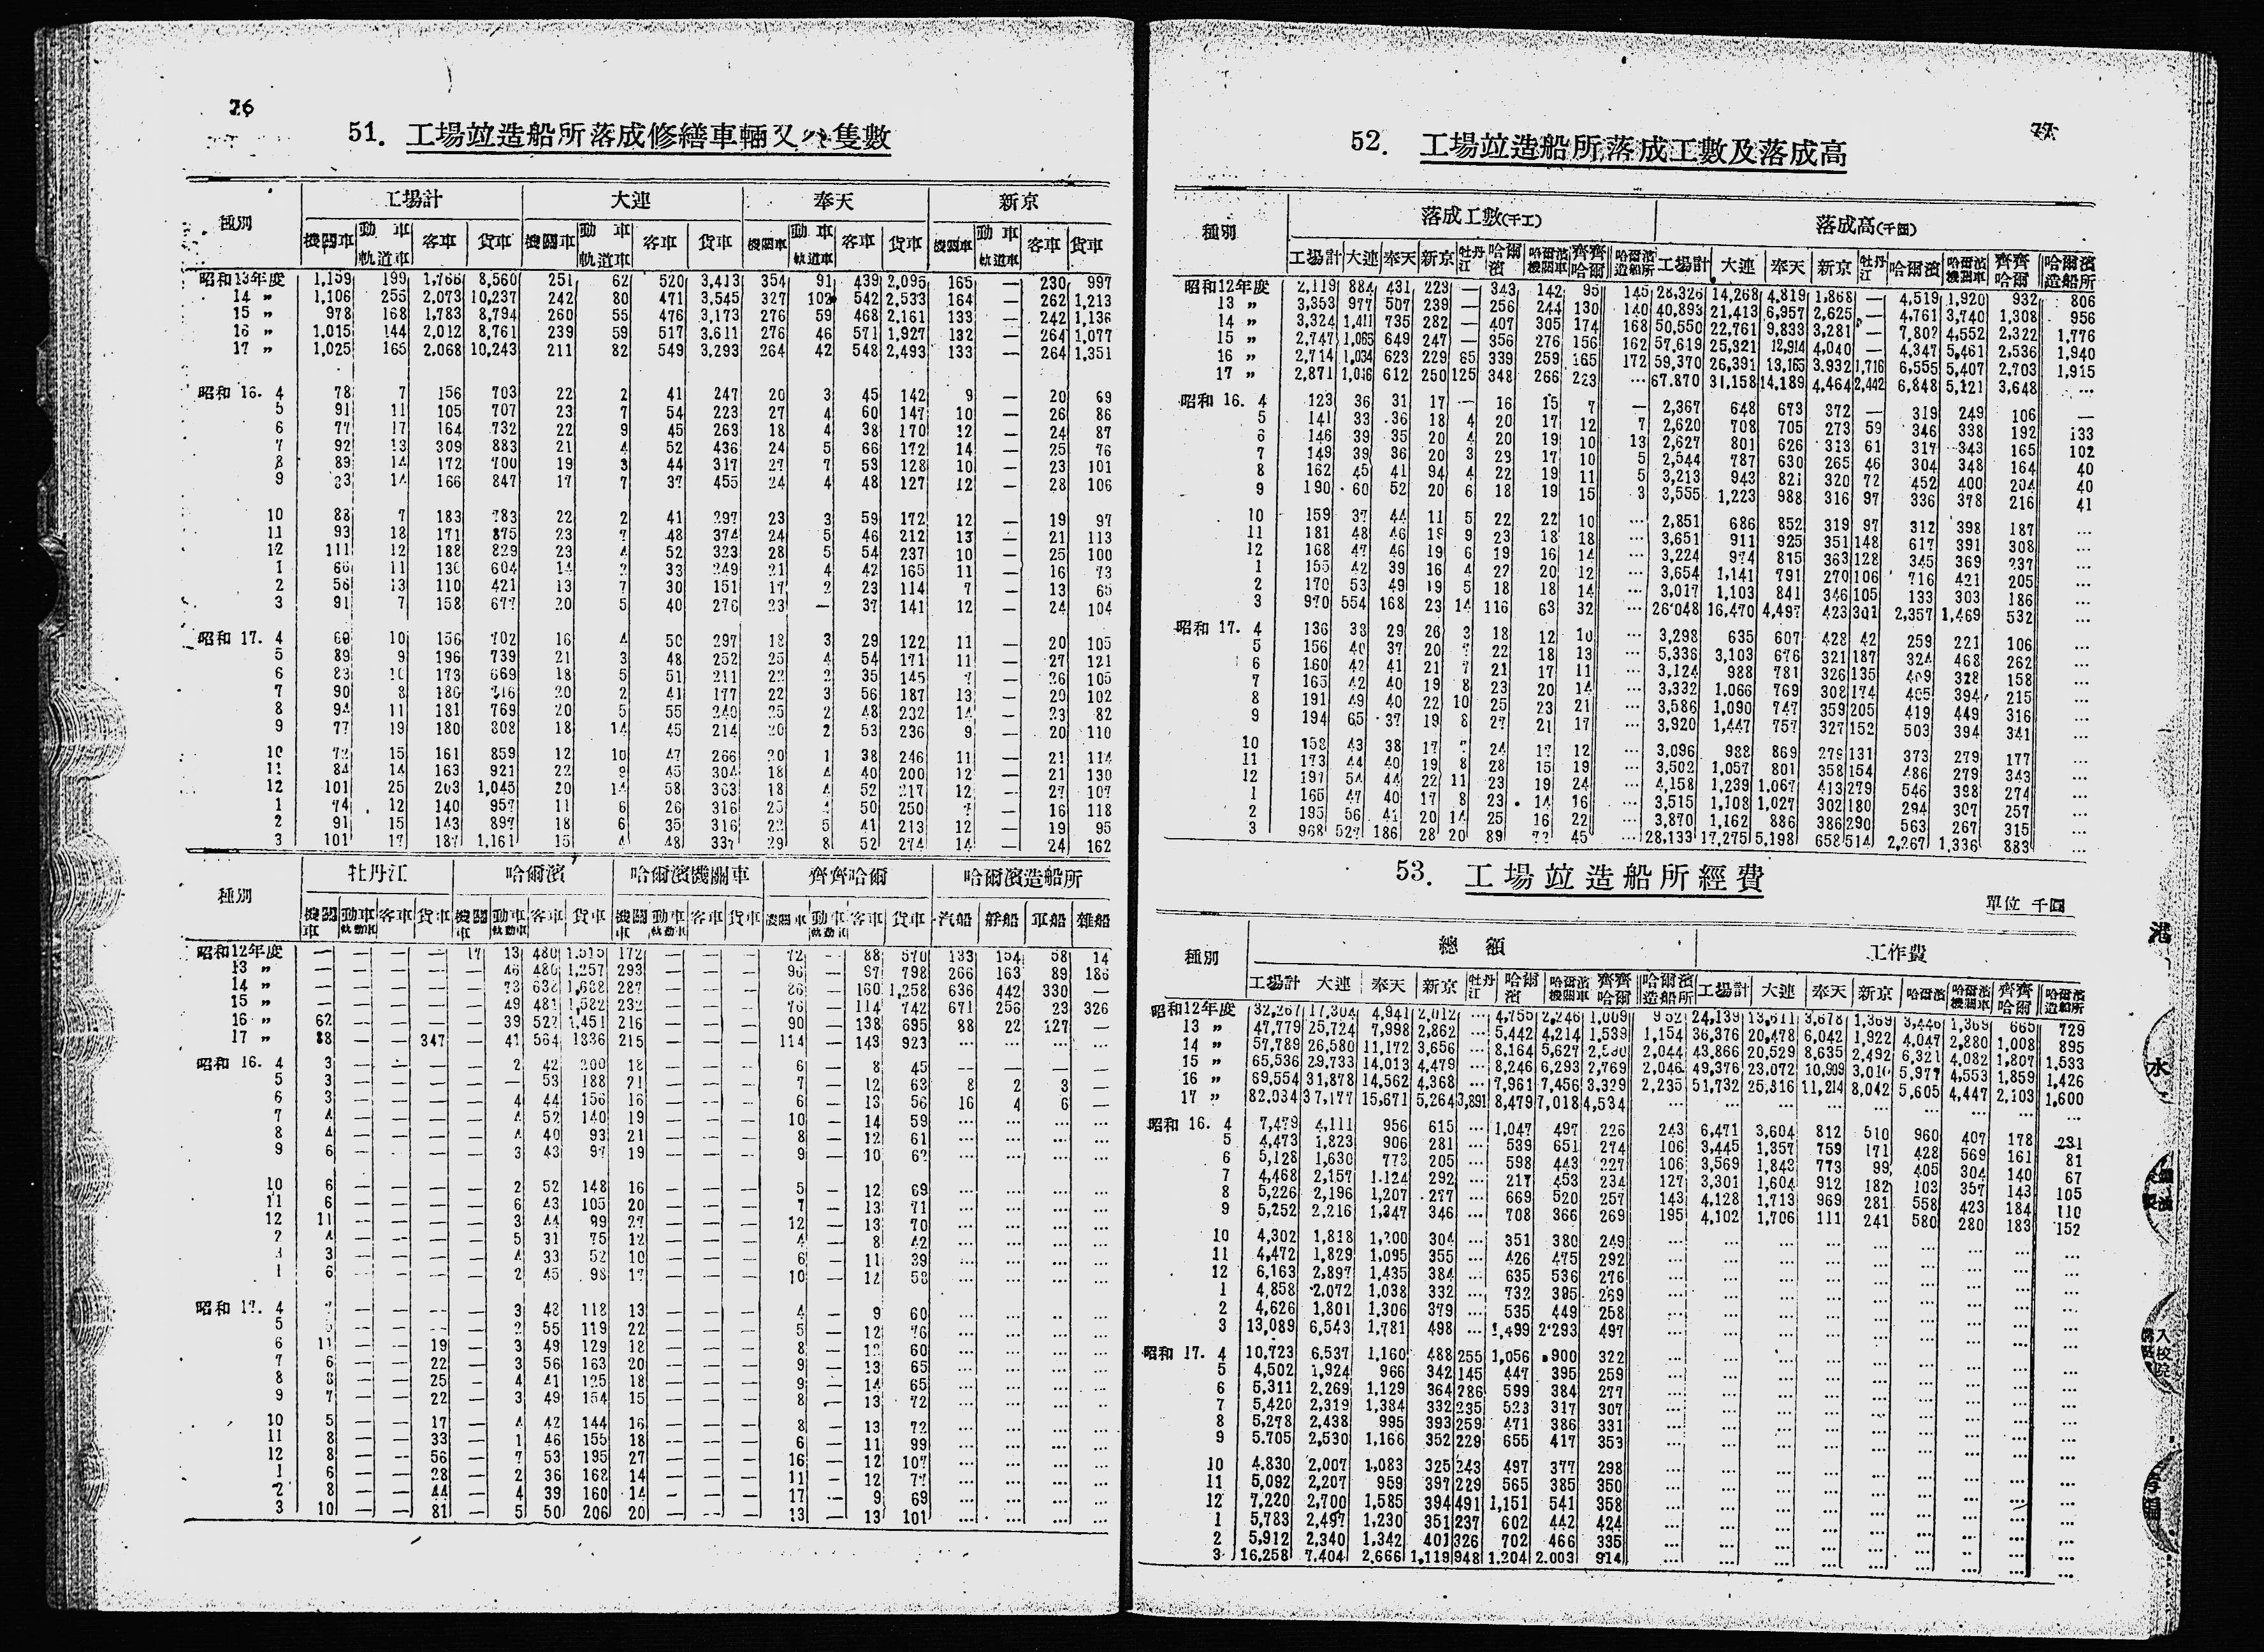 26
51. 工場竝造船所落成修繕車輛又ハ隻數
種別 工場計 大連 奉天 新京
機關車 動車軌道車 客車 貨車 機關車 動車軌道車 客車 貨車 機關車 動車軌道車 客車 貨車 機關車 動車軌道車 客車 貨車
昭和13年度 1,159 199 1,766 8,560 251 62 520 3,413 354 91 439 2,095 165 230 997
14 〃 1,106 255 2,073 10,237 242 80 471 3,545 327 102 542 2,533 164 — 262 1,213
15 〃 978 168 1,783 8,794 260 55 476 3,173 276 59 468 2,161 133 — 242 1,136
16 〃 1,015 144 2,012 8,761 239 59 517 3,611 276 46 571 1,927 132 — 264 1,077
17 〃 1,025 165 2,068 10,243 211 82 549 3,293 264 42 548 2,493 133 — 264 1,351
昭和 16. 4 78 7 156 703 22 2 41 247 20 3 45 142 9 — 20 69
5 91 11 105 707 23 7 54 223 27 4 60 147 10 — 26 86
6 77 17 164 732 22 9 45 263 18 4 38 170 12 — 24 87
7 92 13 309 883 21 4 52 436 24 5 66 172 14 — 25 76
8 89 14 172 700 19 3 44 317 27 7 53 128 10 — 23 101
9 83 14 166 847 17 7 37 455 24 4 48 127 12 — 28 106
10 88 7 183 783 22 2 41 297 23 3 59 172 12 — 19 97
11 93 18 171 875 23 7 48 374 24 5 46 212 13 — 21 113
12 111 12 188 829 23 4 52 323 28 5 54 237 10 — 25 100
1 66 11 130 604 14 2 33 249 21 4 42 165 11 — 16 73
2 56 13 110 421 13 7 30 151 17 2 23 114 7 — 13 65
3 91 7 158 677 20 5 40 276 23 — 37 141 12 — 24 104
昭和 17. 4 60 10 156 702 16 4 50 297 18 3 29 122 11 — 20 105
5 89 9 196 739 21 3 48 252 25 4 54 171 11 — 27 121
6 83 10 173 669 18 5 51 211 22 2 35 145 7 — 26 105
7 90 8 186 716 20 2 41 177 22 3 56 187 13 — 29 102
8 94 11 181 769 20 5 55 240 25 2 48 232 14 — 23 82
9 77 19 180 808 18 14 45 214 20 2 53 236 9 — 20 110
10 72 15 161 859 12 10 47 266 20 1 38 246 11 — 21 114
11 84 14 163 921 22 9 45 304 18 4 40 200 12 — 21 130
12 101 25 203 1,045 20 14 58 363 18 4 52 217 12 — 27 107
1 74 12 140 957 11 6 26 316 25 4 50 250 7 — 16 118
2 91 15 143 897 18 6 35 316 22 5 41 213 12 — 19 95
3 101 17 187 1,161 15 4 48 337 29 8 52 274 14 — 24 162
種別 牡丹江 哈爾濱 哈爾濱機關車 齊齊哈爾 哈爾濱造船所
機關車 動車軌動車 客車 貨車 機關車 動車軌動車 客車 貨車 機關車 動車軌動車 客車 貨車 機關車 動車軌動車 客車 貨車 汽船 艀船 軍船 雜船
昭和12年度 — — — — 17 13 480 1,515 172 — — — 72 — 88 570 133 154 58 14
13 〃 — — — — — 46 480 1,257 293 — — — 96 — 97 798 266 163 89 186
14 〃 — — — — — 73 638 1,688 287 — — — 86 — 160 1,258 636 442 330 —
15 〃 — — — — — 49 481 1,582 232 — — — 76 — 114 742 671 256 23 326
16 〃 62 — — — — 39 527 1,451 216 — — — 90 — 138 695 88 22 127 —
17 〃 88 — — 347 — 41 564 1836 215 — — — 114 — 143 923 … … … …
昭和 16. 4 3 — — — — 2 42 200 18 — — — 6 — 8 45 — — — —
5 3 — — — — — 53 188 21 — — — 7 — 12 63 8 2 3 —
6 3 — — — — 4 44 156 16 — — — 6 — 13 56 16 4 6 —
7 4 — — — — 4 52 140 19 — — — 10 — 14 59 … … … …
8 4 — — — — 4 40 93 21 — — — 8 — 12 61 … … … …
9 6 — — — — 3 43 97 19 — — — 9 — 10 62 … … … …
10 6 — — — — 2 52 148 16 — — — 5 — 12 69 … … … …
11 6 — — — — 6 43 105 20 — — — 7 — 13 71 … … … …
12 11 — — — — 3 44 99 27 — — — 12 — 13 70 … … … …
2 4 — — — — 5 31 75 12 — — — 4 — 8 42 … … … …
3 3 — — — — 4 33 52 10 — — — 6 — 11 39 … … … …
1 6 — — — — 2 45 98 17 — — — 10 — 12 58 … … … …
昭和 17. 4 7 — — — — 3 48 118 13 — — — 4 — 9 60 … … … …
5 — — — — 2 55 119 22 — — — 5 — 12 76 … … … …
6 11 — — 19 — 3 49 129 18 — — — 8 — 12 60 … … … …
7 6 — — 22 — 3 56 163 20 — — — 9 — 13 65 … … … …
8 8 — — 25 — 4 41 125 18 — — — 9 — 14 65 … … … …
9 7 — — 22 — 3 49 154 15 — — — 8 — 13 72 … … … …
10 5 — — 17 — 4 42 144 16 — — — 8 — 13 72 … … … …
11 8 — — 33 — 1 46 155 18 — — — 6 — 11 99 … … … …
12 8 — — 56 — 7 53 195 27 — — — 16 — 12 107 … … … …
1 6 — — 28 — 2 36 168 14 — — — 11 — 12 77 … … … …
2 8 — — 44 — 4 39 160 14 — — — 17 — 9 69 … … … …
3 10 — — 81 — 5 50 206 20 — — — 13 — 13 101 … … … …
77
52. 工場竝造船所落成工數及落成高
種別 落成工數(千工) 落成高(千圓)
工場計 大連 奉天 新京 牡丹江 哈爾濱 哈爾濱機關車 齊齊哈爾 哈爾濱造船所 工場計 大連 奉天 新京 牡丹江 哈爾濱 哈爾濱機關車 齊齊哈爾 哈爾濱造船所
昭和12年度 2,119 884 431 223 — 343 142 95 145 28,326 14,268 4,819 1,868 — 4,519 1,920 932 806
13 〃 3,353 977 507 239 — 256 244 130 140 40,893 21,413 6,957 2,625 — 4,761 3,740 1,308 956
14 〃 3,324 1,411 735 282 — 407 305 174 168 50,550 22,761 9,833 3,281 — 7,802 4,552 2,322 1,776
15 〃 2,747 1,065 649 247 — 356 276 156 162 57,619 25,321 12,914 4,040 — 4,347 5,461 2,536 1,940
16 〃 2,714 1,034 623 229 65 339 259 165 172 59,370 26,391 13,165 3,932 1,716 6,555 5,407 2,703 1,915
17 〃 2,871 1,046 612 250 125 348 266 223 … 67,870 31,158 14,189 4,464 2,442 6,848 5,121 3,648 …
昭和 16. 4 123 36 31 17 — 16 15 7 — 2,367 648 673 372 — 319 249 106 —
5 141 33 36 18 4 20 17 12 7 2,620 708 705 273 59 346 338 192 133
6 146 39 35 20 4 20 19 10 13 2,627 801 626 313 61 317 343 165 102
7 149 39 36 20 3 23 17 10 5 2,544 787 630 265 46 304 348 164 40
8 162 45 41 94 4 22 19 11 5 3,213 943 821 320 72 452 400 204 40
9 190 60 52 20 6 18 19 15 3 3,555 1,223 988 316 97 336 378 216 41
10 159 37 44 11 5 22 22 10 … 2,851 686 852 319 97 312 398 187 …
11 181 48 46 19 9 23 18 18 … 3,651 911 925 351 148 617 391 308 …
12 168 47 46 19 6 19 16 14 … 3,224 974 815 363 128 345 369 237 …
1 155 42 39 16 4 27 20 12 … 3,654 1,141 791 270 106 716 421 205 …
2 170 53 49 19 5 18 18 14 … 3,017 1,103 841 346 105 133 303 186 …
3 970 554 168 23 14 116 63 32 … 26,048 16,470 4,497 423 301 2,357 1,469 532 …
昭和 17. 4 136 38 29 26 3 18 12 10 … 3,298 635 607 428 42 259 221 106 …
5 156 40 37 20 7 22 18 13 … 5,336 3,103 676 321 187 324 468 262 …
6 160 42 41 21 7 21 17 11 … 3,124 988 781 326 135 409 328 158 …
7 165 42 40 19 8 23 20 14 … 3,332 1,066 769 308 174 405 394 215 …
8 191 49 40 22 10 25 23 21 … 3,586 1,090 747 359 205 419 449 316 …
9 194 65 37 19 8 27 21 17 … 3,920 1,447 757 327 152 503 394 341 …
10 158 43 38 17 7 24 17 12 … 3,096 988 869 279 131 373 279 177 …
11 173 44 40 19 8 28 15 19 … 3,502 1,057 801 358 154 486 279 343 …
12 197 54 44 22 11 23 19 24 … 4,158 1,239 1,067 413 279 546 398 274 …
1 165 47 40 17 8 23 14 16 … 3,515 1,108 1,027 302 180 294 307 257 …
2 195 56 41 20 14 25 16 22 … 3,870 1,162 886 386 290 563 267 315 …
3 968 527 186 28 20 89 72 45 … 28,133 17,275 5,198 658 514 2,267 1,336 883 …
53. 工場竝造船所經費
單位 千圓
種別 總額 工作費
工場計 大連 奉天 新京 牡丹江 哈爾濱 哈爾濱機關車 齊齊哈爾 哈爾濱造船所 工場計 大連 奉天 新京 哈爾濱 哈爾濱機關車 齊齊哈爾 哈爾濱造船所
昭和12年度 32,267 17,304 4,941 2,012 … 4,755 2,246 1,009 952 24,139 13,611 3,678 1,369 3,446 1,369 665 729
13 〃 47,779 25,724 7,998 2,862 … 5,442 4,214 1,539 1,154 36,376 20,478 6,042 1,922 4,047 2,880 1,008 895
14 〃 57,789 26,580 11,172 3,656 … 8,164 5,627 2,590 2,044 43,866 20,529 8,635 2,492 6,321 4,082 1,807 1,533
15 〃 65,536 29,733 14,013 4,479 … 8,246 6,293 2,769 2,046 49,376 23,072 10,909 3,010 5,977 4,553 1,859 1,426
16 〃 69,554 31,878 14,562 4,368 … 7,961 7,456 3,329 2,235 51,732 25,816 11,214 8,042 5,605 4,447 2,103 1,600
17 〃 82,034 37,177 15,671 5,264 3,891 8,479 7,018 4,534 … … … … … … … … …
昭和 16. 4 7,479 4,111 956 615 … 1,047 497 226 243 6,471 3,604 812 510 960 407 178 231
5 4,473 1,823 906 281 … 539 651 274 106 3,445 1,357 759 171 428 569 161 81
6 5,128 1,630 773 205 … 598 443 227 106 3,569 1,843 773 99 405 304 140 67
7 4,468 2,157 1,124 292 … 217 453 234 127 3,301 1,604 912 182 103 357 143 105
8 5,226 2,196 1,207 277 … 669 520 257 143 4,128 1,713 969 281 558 423 184 110
9 5,252 2,216 1,347 346 … 708 366 269 195 4,102 1,706 111 241 580 280 183 152
10 4,302 1,818 1,200 304 … 351 380 249 … … … … … … … … …
11 4,472 1,829 1,095 355 … 426 475 292 … … … … … … … … …
12 6,163 2,897 1,435 384 … 635 536 276 … … … … … … … … …
1 4,858 2,072 1,038 332 … 732 395 269 … … … … … … … … …
2 4,626 1,801 1,306 379 … 535 449 258 … … … … … … … … …
3 13,089 6,543 1,781 498 … 1,499 2,293 497 … … … … … … … … …
昭和 17. 4 10,723 6,537 1,160 488 255 1,056 900 322 … … … … … … … … …
5 4,502 1,924 966 342 145 447 395 259 … … … … … … … … …
6 5,311 2,269 1,129 364 286 599 384 277 … … … … … … … … …
7 5,420 2,319 1,384 332 235 523 317 307 … … … … … … … … …
8 5,278 2,438 995 393 259 471 386 331 … … … … … … … … …
9 5,705 2,530 1,166 352 229 655 417 353 … … … … … … … … …
10 4,830 2,007 1,083 325 243 497 377 298 … … … … … … … … …
11 5,092 2,207 959 397 229 565 385 350 … … … … … … … … …
12 7,220 2,700 1,585 394 491 1,151 541 358 … … … … … … … … …
1 5,783 2,497 1,230 351 237 602 442 424 … … … … … … … … …
2 5,912 2,340 1,342 401 326 702 466 335 … … … … … … … … …
3 16,258 7,404 2,666 1,119 948 1,204 2,003 914 … … … … … … … … …
港
水
入
校
院